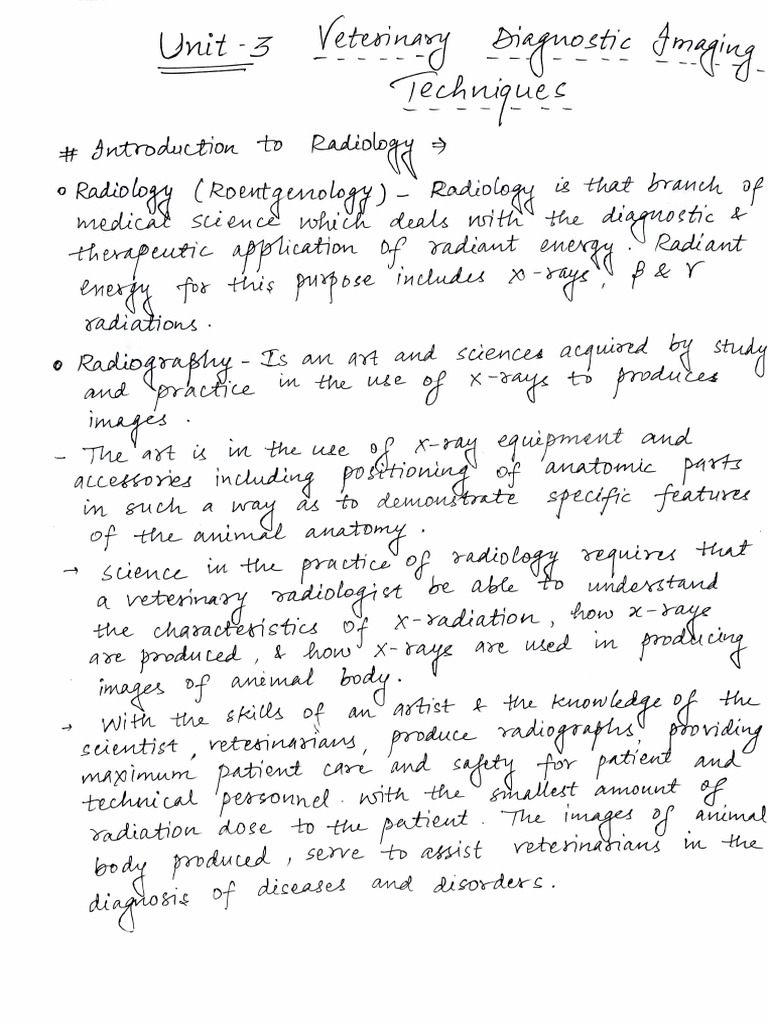 Unit-3 Veterinary Diagnostic Imaging
Techniques
# Introduction to Radiology ⇒
o Radiology (Roentgenology) - Radiology is that branch of
medical science which deals with the diagnostic &
therapeutic application of radiant energy. Radiant
energy for this purpose includes x-rays, β & γ
radiations.
o Radiography - Is an art and sciences acquired by study
and practice in the use of x-rays to produces
images.
- The art is in the use of x-ray equipment and
accessories including positioning of anatomic parts
in such a way as to demonstrate specific features
of the animal anatomy.
→ science in the practice of radiology requires that
a veterinary radiologist be able to understand
the characteristics of x-radiation, how x-rays
are produced, & how x-rays are used in producing
images of animal body.
→ With the skills of an artist & the knowledge of the
scientist, veterinarians, produce radiographs, providing
maximum patient care and safety for patient and
technical personnel. with the smallest amount of
radiation dose to the patient. The images of animal
body produced, serve to assist veterinarians in the
diagnosis of diseases and disorders.